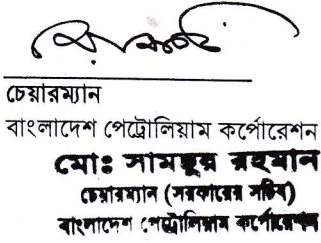 চেয়ারম্যান
বাংলাদেশ পেট্রোলিয়াম কর্পোরেশন
মোঃ সামছুর রহমান
চেয়ারম্যান (সরকারের সচিব)
বাংলাদেশ পেট্রোলিয়াম কর্পোরেশন